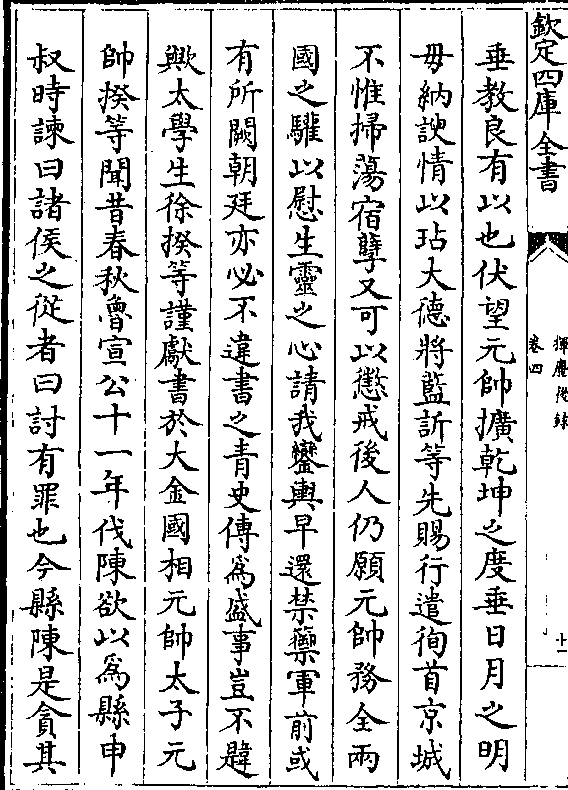 欽定四庫全書
揮麈後録
卷四
十一
垂教良有以也伏望元帥擴乾坤之度垂日月之明
毋納諛情以玷大德將藍訢等先賜行遣徇首京城
不惟掃蕩宿孽又可以懲戒後人仍願元帥務全兩
國之驩以慰生靈之心請我鑾輿早還禁籞軍前或
有所闕朝廷亦必不違書之青史傳為盛事豈不韙
歟太學生徐揆等謹獻書於大金國相元帥太子元
帥揆等聞昔春秋魯宣公十一年伐陳欲以為縣申
叔時諫曰諸侯之從者曰討有罪也今縣陳是貪其